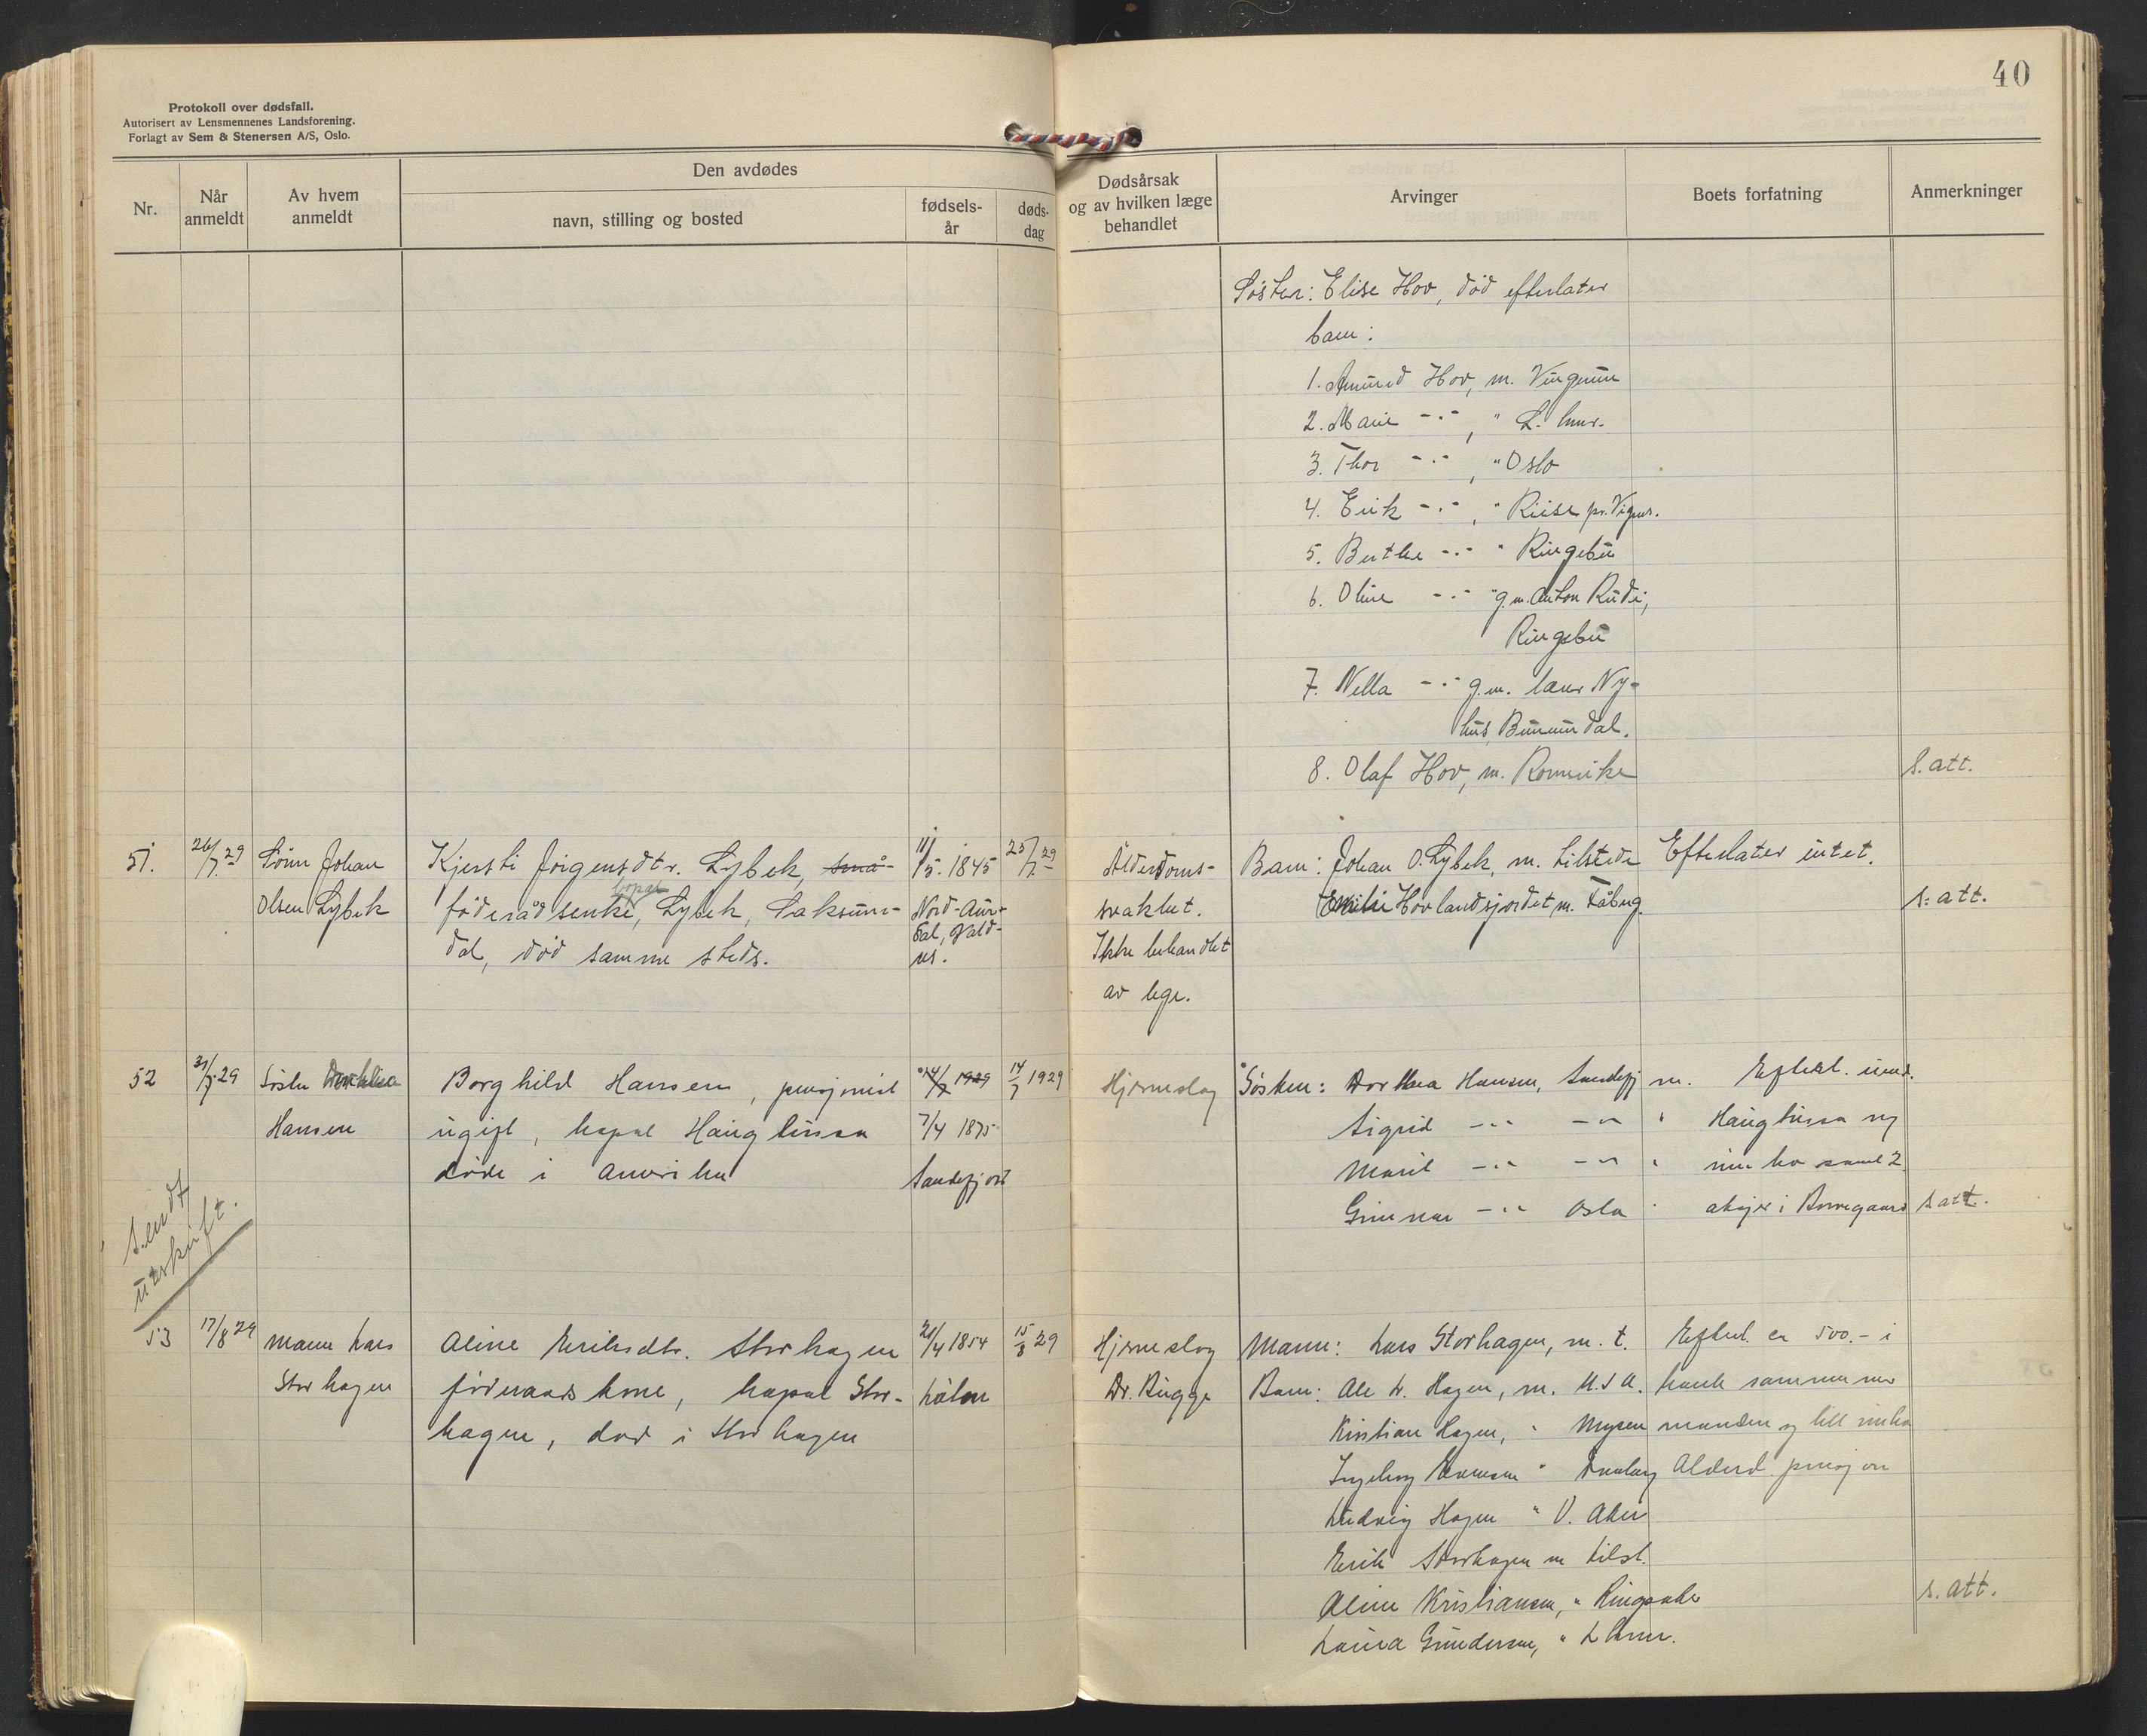 40
Protokoll over dødsfall.
Autorisert av Lensmennenes Landsforening.
Forlagt av Sem & Stenersen A/S, Oslo.
Nr.
Når anmeldt
Av hvem anmeldt
Den avdødes
navn, stilling og bosted
fødsels-år
døds-dag
Dødsårsak og av hvilken læge behandlet
Arvinger
Boets forfatning
Anmerkninger
Søster: Elise Hov, død efterlater
barn:
1. Amund Hov, m. Vingrum
2. Marie -"-, " L.hmr.
3. Thor -"-, " Oslo
4. Erik -"-, " Riise pr. Vigns.
5. Berthe -"- " Ringebu
6. Oline -"- " g.m. Anton Rudi,
Ringebu
7. Nella -"- g.m. lærer Ny-
hus, Brumunddal.
8. Olaf Hov, m. Romerike
s. att.
51. 26/7 29 Sønn Johan Kjersti Jørgensdtr. Lybek, små- 11/5. 1845 25/7 29
Olsen Lybek føderådsenke, bopæl Lybek, Saksum- Nord-Aur-
dal, død samme steds. dal, Vald-
res.
Alderdoms-
svakhet.
Ikke behandlet
av lege.
Barn: Johan O. Lybek, m. tilstede
Emilie Hovlandsjordet, m. Fåbrg.
Efterlater intet.
s. att.
52 31/7 29 Søster Dorthea Borghild Hansen, pensjonist 14/7 1929 14/7 1929
Hansen ugift, bopæl Haugtussa 7/4 1875
døde i Amerika Sandefjord
Hjerneslag
Søsken: Dorthea Hansen, Sandefj m.
Sigrid -"- -"- "
Marit -"- -"- "
Gunnar -"- Oslo "
Efterl. eiend.
Haugtussa og
innbo samt 2
aksjer i Borregaard
s att.
Sendt
utskrift.
53 17/8 29 Mann Lars Aline Eriksdtr. Storhagen 21/4 1854 15/8 29
Storhagen føderaadskone, bopæl Stor- Løten
hagen, død i Storhagen
Hjerneslag
Dr. Bugge
Mann: Lars Storhagen, m. t.
Barn: Ole L. Hagen, m. U.S.A.
Kristian Hagen, " Mysen
Ingeborg " 
Ludvig Hagen " V. Aker
Erik Storhagen m tilst.
Aline Kristiansen, " Ringsaker
Laura Gundersen, " Lhmr.
Efterl. ca 500.- i
bank sammen med
mannen og litt innbo
Alderd. pensjon
s. att.